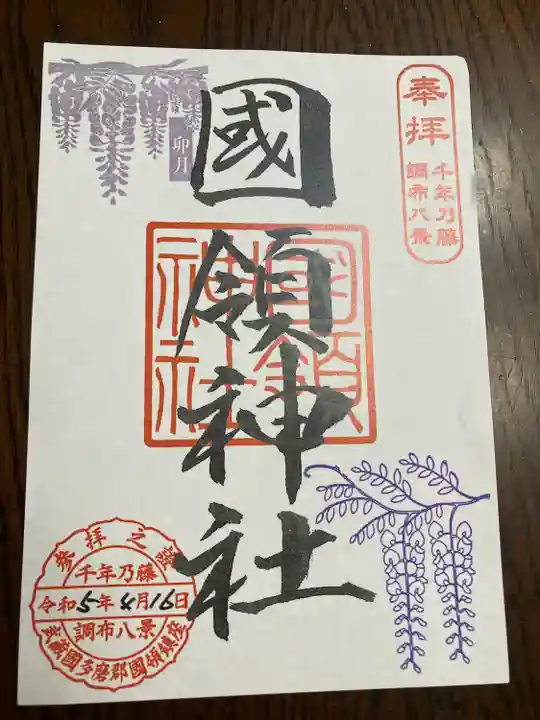 奉拝
千年乃藤
調布八景
卯月
國領神社
国領
神社
参拝之證
千年乃藤
令和5年4月16日
調布八景
武蔵國多磨郡國領鎮座